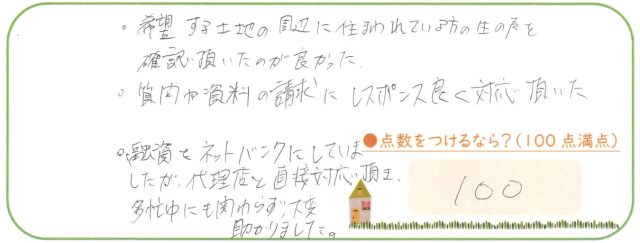 。希望する土地の周辺に住まわれている方の生の声を
確認頂いたのが良かった。
。質問や資料の請求にレスポンス良く対応頂いた
。融資をネットバンクにしていま
したが、代理店と直接対応頂き、
多忙中にも関わらず、大変
助かりました。
●点数をつけるなら?(100点満点)
100